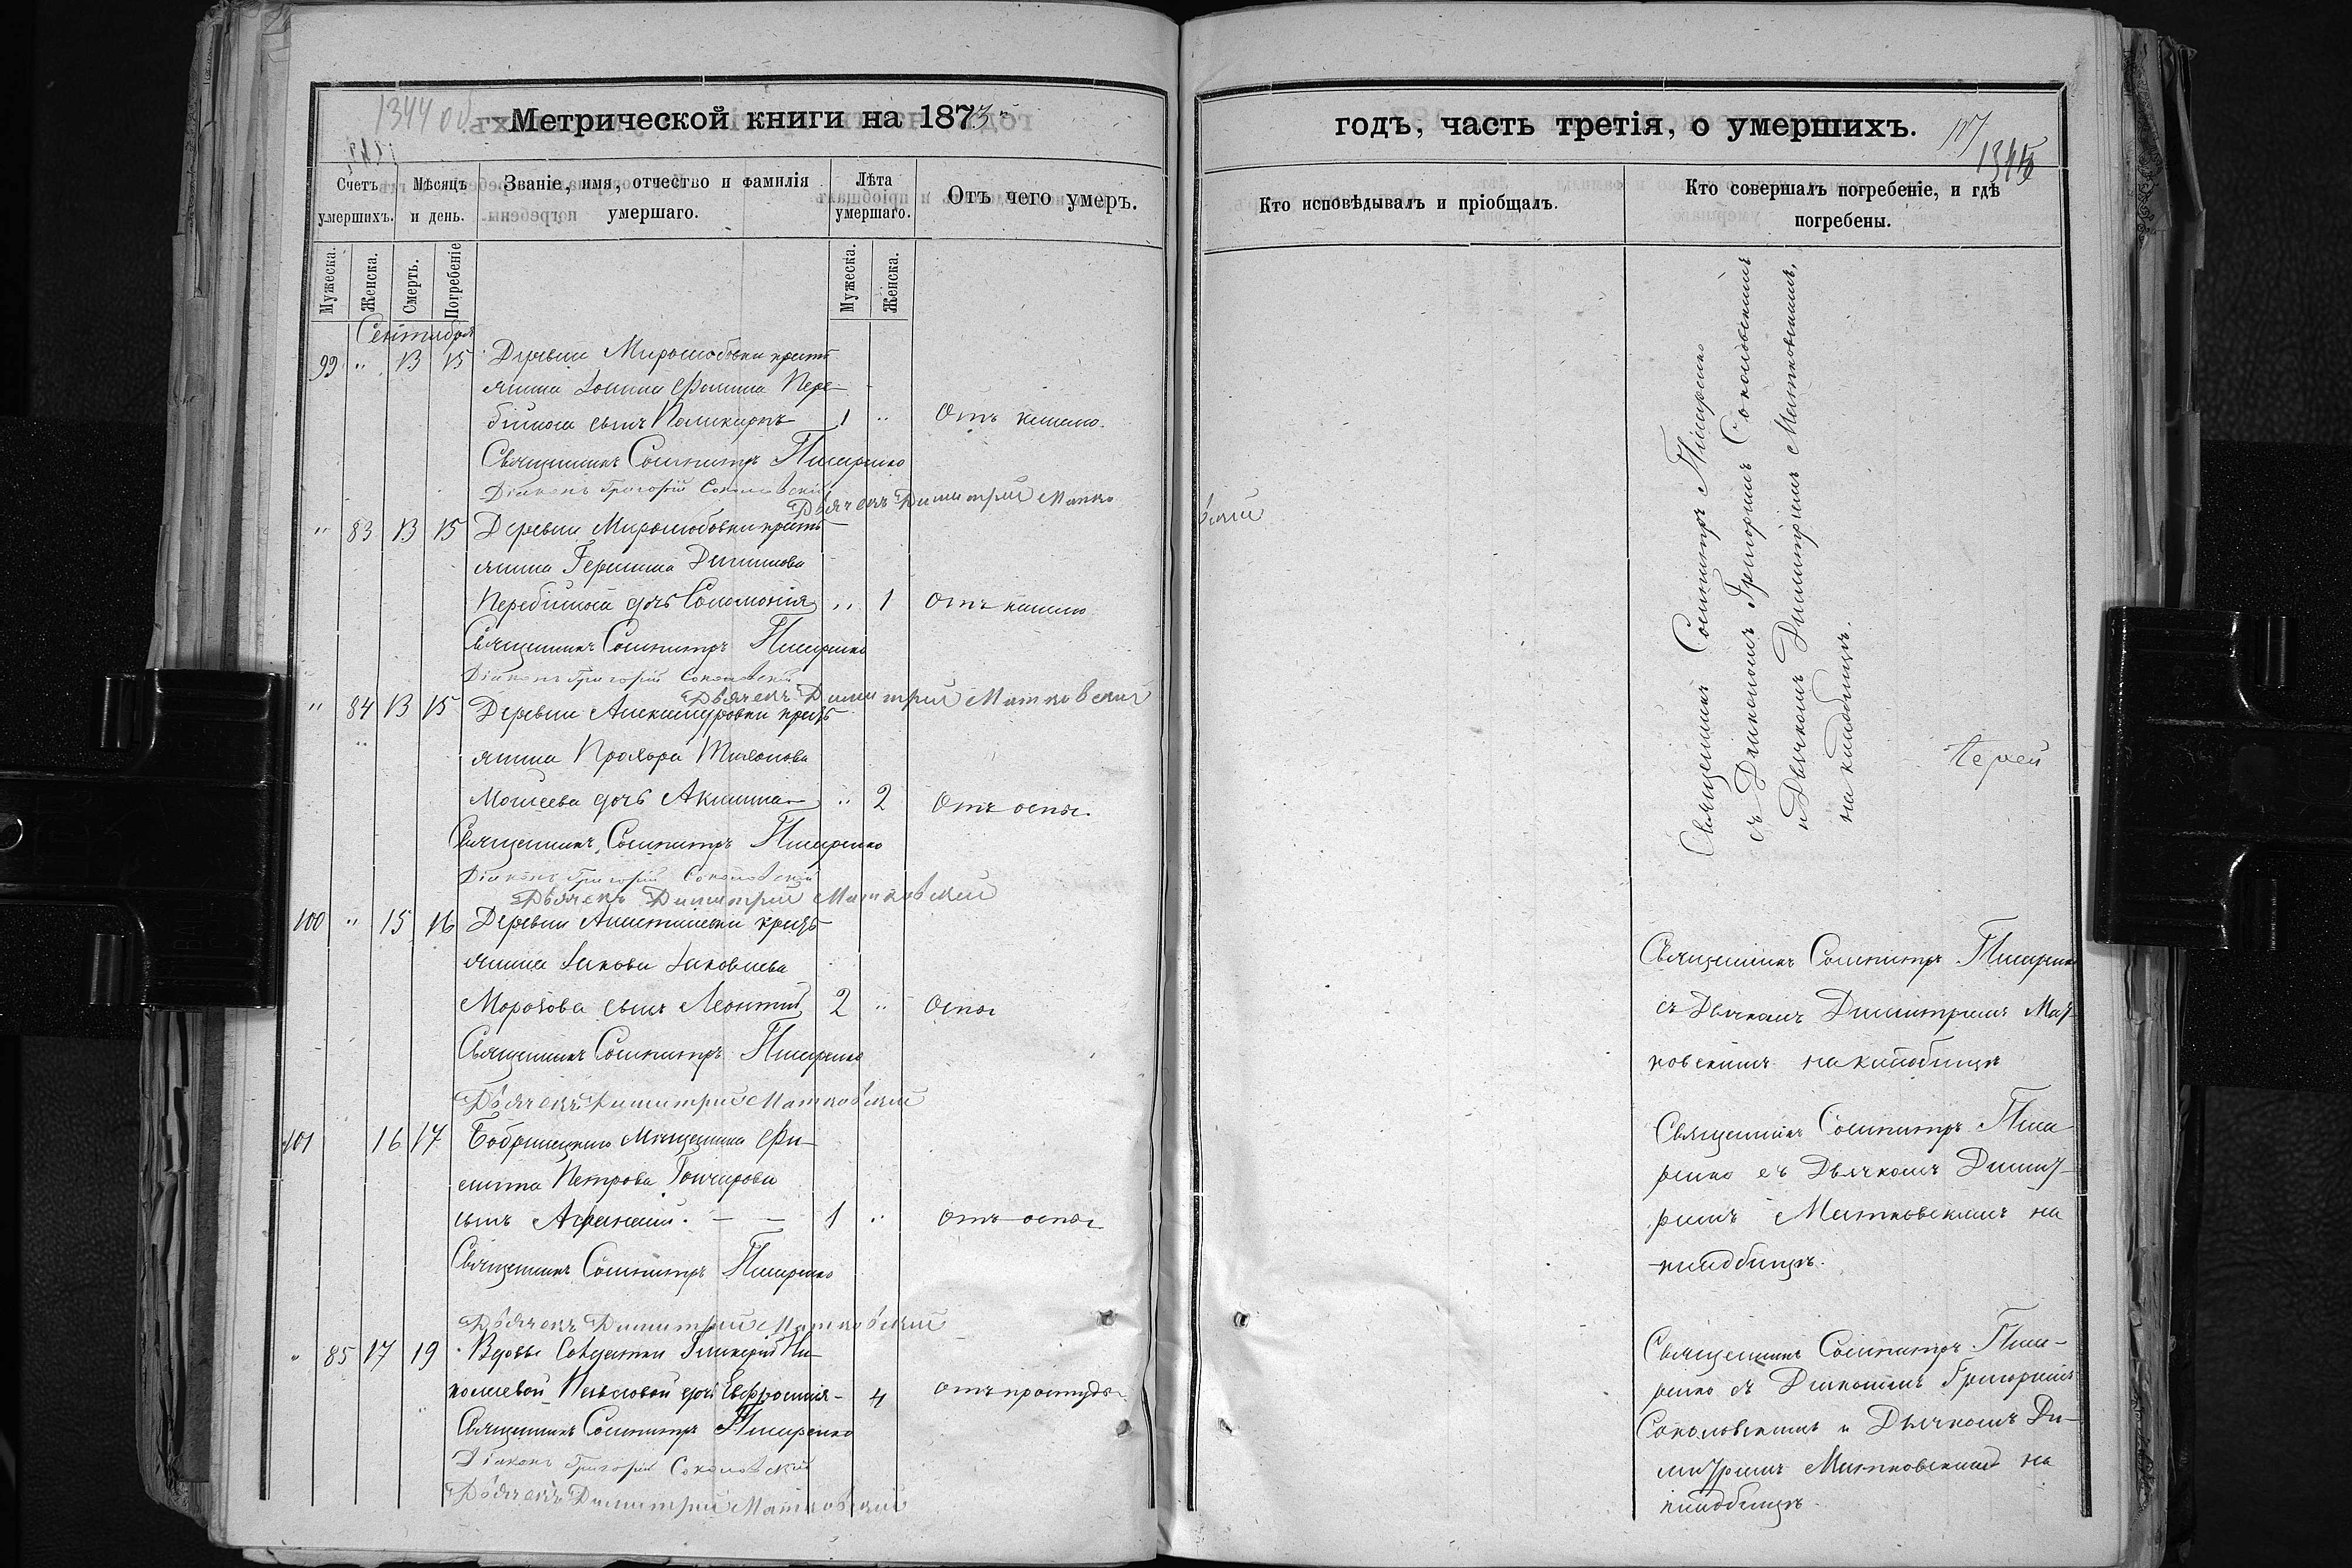 1344 об.
Метрической книги на 1873
Счетъ умершихъ.
Мѣсяцъ и день.
Званіе, имя, отчество и фамилія умершаго.
Лѣта умершаго.
Отъ чего умеръ.
Мужеска.
Женска.
Смерть.
Погребеніе
Мужеска.
Женска.
Сентября
99 " 13 15 Деревни Миролюбовки кресть-
янина Іоанна Фомина Пере-
бійноса сынъ Поликарпъ 1 " Отъ кашлю.
Священникъ Сосипатръ Писаренко
Діаконъ Григорій Соколовскій
Дьячекъ Димитрій Матко
" 83 13 15 Деревни Миролюбовки кресть-
янина Герасима
Перебійноса дочь Соломонія " 1 Отъ кашлю
Священникъ Сосипатръ Писаренко
Діаконъ Григорій Соколовскій
Дьячекъ Димитрій Матковскій
" 84 13 15 Деревни Александровки кресть-
янина Прохора Тихонова
Моисеева дочь Акилина " 2 Отъ оспы.
Священникъ Сосипатръ Писаренко
Діаконъ Григорій Соколовскій
Дьячекъ Димитрій Матковскій
100 " 15 16 Деревни кресть-
янина Іакова Іаковлева
Морозова сынъ Леонтій 2 " Оспы
Священникъ Сосипатръ Писаренко
Дьячекъ Димитрій Матковскій
101 16 17 Бобринецкого Мѣщанина Фи-
липа Петрова Гончарова
сынъ Афанасій. — — 1 " Отъ оспы
Священникъ Сосипатръ Писаренко
Дьячекъ Димитрій Матковскій
" 85 17 19 Вдовы Солдатки Гликеріи Ни-
колаевой дочь Евфросинія - 4 Отъ простуды
Священникъ Сосипатръ Писаренко
Діаконъ Григорій Соколовскій
Дьячекъ Димитрій Матковскій
годъ, часть третія, о умершихъ.
1345
Кто исповѣдывалъ и пріобщалъ.
Кто совершалъ погребеніе, и гдѣ погребены.
вскій
Священникъ Сосипатръ Писаренко
съ Діакономъ Григоріемъ Соколовскимъ
и Дьячкомъ Димитріемъ Матковскимъ,
на кладбищѣ.
Священникъ Сосипатръ Писаренко
съ Дьячкомъ Димитріемъ Мат-
ковскимъ на кладбищѣ
Священникъ Сосипатръ Писа-
ренко съ Дьячкомъ Димит-
ріемъ Матковскимъ на
кладбищѣ.
Священникъ Сосипатръ Писа-
ренко съ Діакономъ Григоріемъ
Соколовскимъ и Дьячкомъ Ди-
митріемъ Матковскимъ на
кладбищѣ.